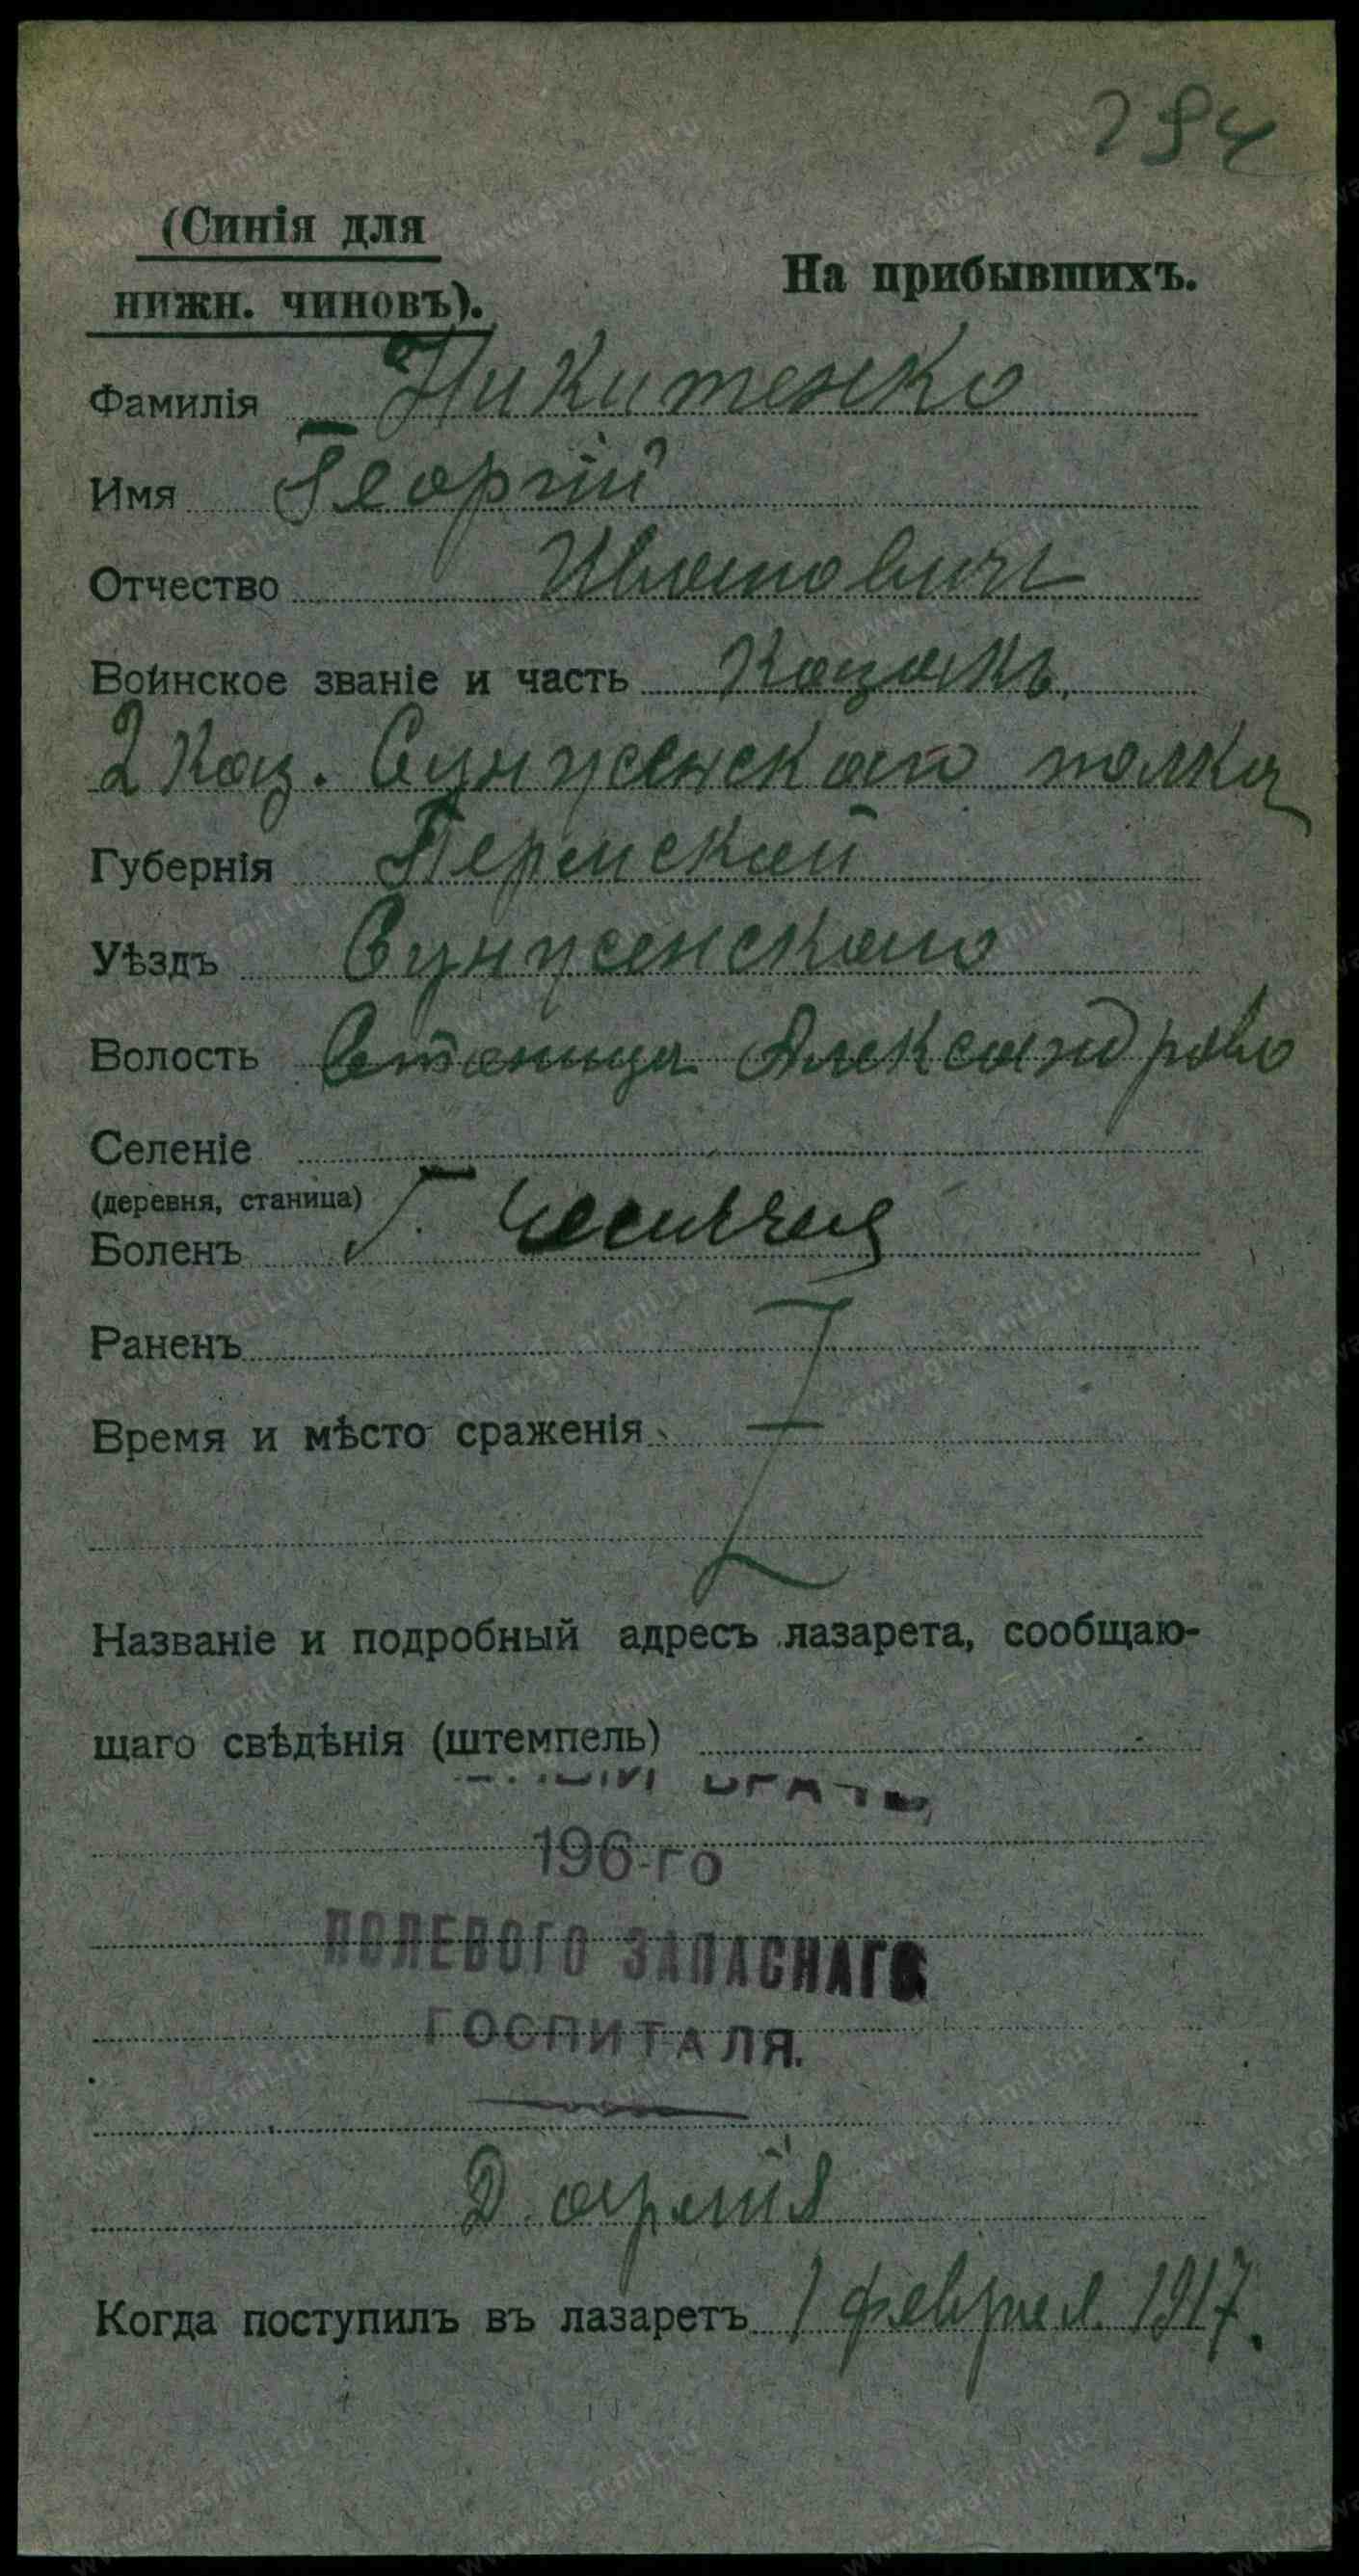 294
(Синія для
нижн. чиновъ).
На прибывшихъ.
Фамилія Никитенко
Имя Георгій
Отчество Ивановичъ
Воинское званіе и часть Козакъ
2 Каз. Сунженскаго полка
Губернія
Уѣздъ Сунженскаго
Волость Станица Александрово
Селеніе
(деревня, станица)
Боленъ
Раненъ
Время и мѣсто сраженія
Названіе и подробный адресъ лазарета, сообщаю-
щаго свѣдѣнія (штемпель)
196-го
ПОЛЕВОГО ЗАПАСНАГО
ГОСПИТАЛЯ.
Когда поступилъ въ лазаретъ 1 февраля 1917.